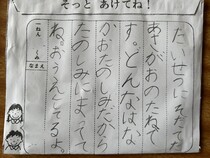 そっと あけてね!
たいせつにそだてた
あさがおのたねで
す。どんなはな
かおたのしみだから
たのしみにまってて
ね。おうえんしてるよ
ねん
くみ
なまえ